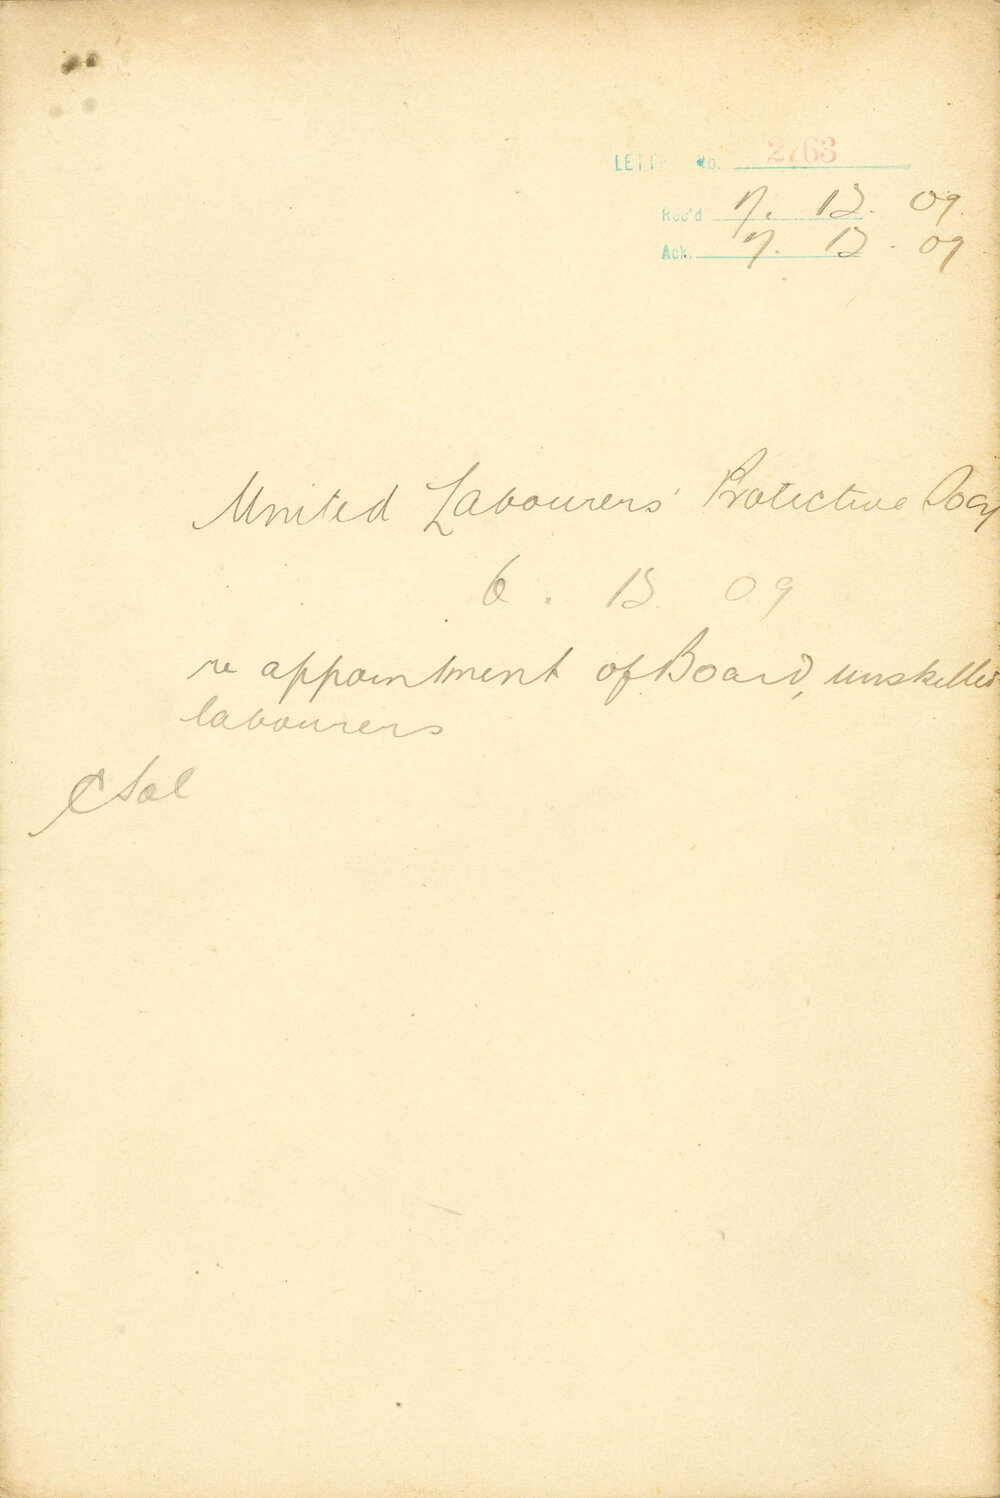 LETTER No. 2763
Rec'd 7. 12. 09.
Ack. 7. 12. 09
United Labourers' Protective Socy
6. 12 09
re appointment of Board, unskilled
labourers